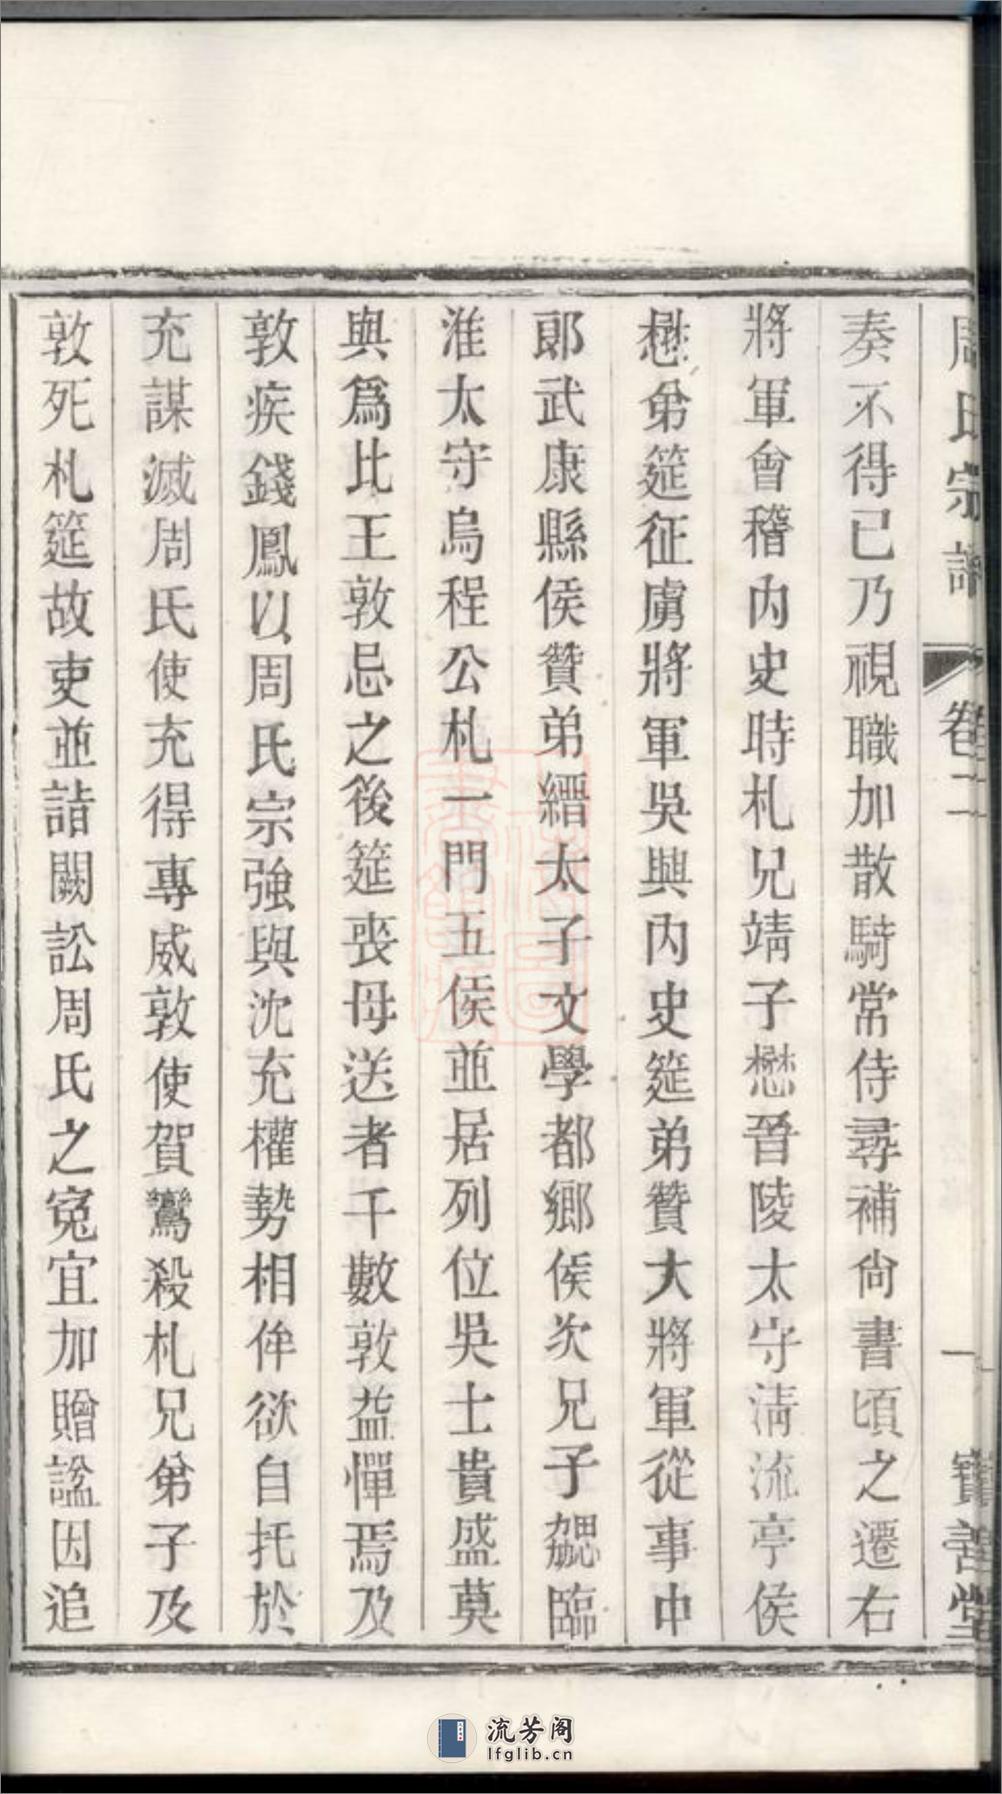 周氏宗譜 卷二 一 寶善堂
奏不得已乃視職加散騎常侍尋補尙書頃之遷右
將軍會稽內史時札兄靖子懋晉陵太守淸流亭侯
懋弟筵征虜將軍吳興內史筵弟贊大將軍從事中
郞武康縣侯贊弟縉太子文學都鄉侯次兄子勰臨
淮太守烏程公札一門五侯並居列位吳士貴盛莫
與爲比王敦忌之後筵喪母送者千數敦益憚焉及
敦疾錢鳳以周氏宗強與沈充權勢相侔欲自托於
充謀滅周氏使充得專威敦使賀鸞殺札兄弟子及
敦死札筵故吏並詣闕訟周氏之寃宜加贈諡因追
流芳阁
lfglib.cn